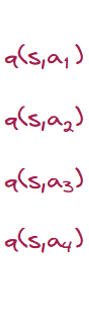 q(s,a₁)
q(s,a₂)
q(s,a₃)
q(s,a₄)